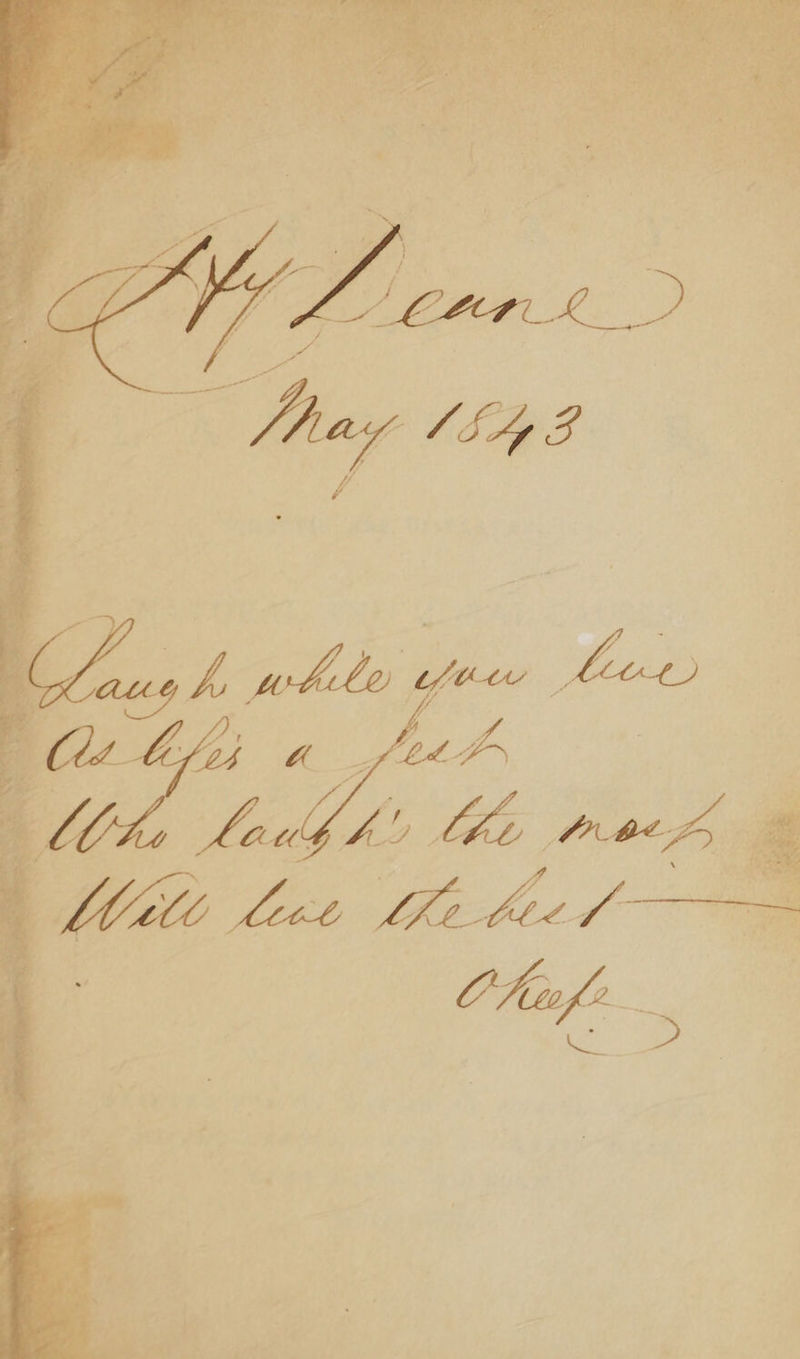 Hy Deane
May 1843
Laugh while you live
As life's a jest
Who laugh's the most
Will live the best
O'Keefe